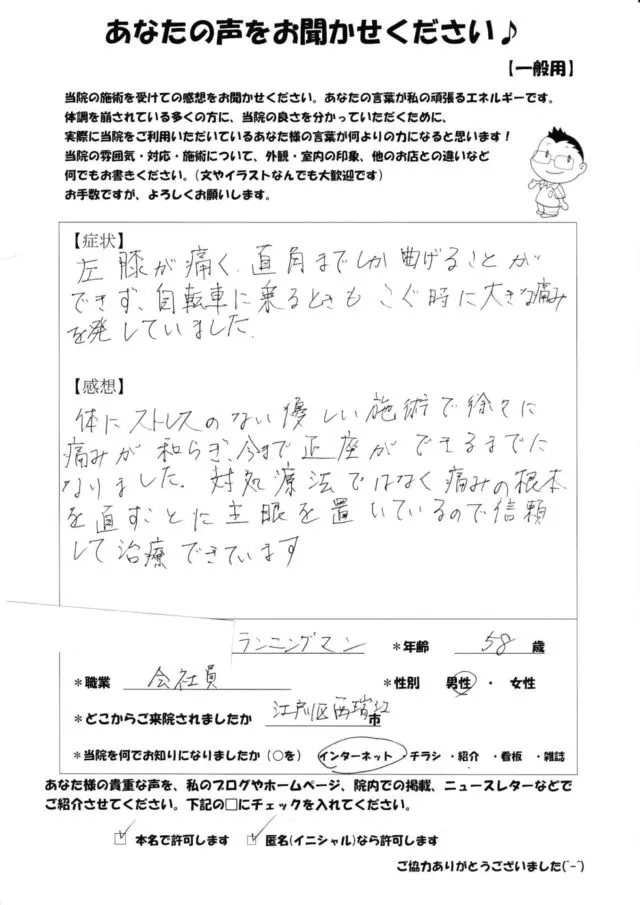 あなたの声をお聞かせください♪
【一般用】
当院の施術を受けての感想をお聞かせください。あなたの言葉が私の頑張るエネルギーです。
体調を崩されている多くの方に、当院の良さを分かっていただくために、
実際に当院をご利用いただいているあなた様の言葉が何よりの力になると思います!
当院の雰囲気・対応・施術について、外観・室内の印象、他のお店との違いなど
何でもお書きください。(文やイラストなんでも大歓迎です)
お手数ですが、よろしくお願いします。
【症状】
左膝が痛く、直角までしか曲げることが
できず、自転車に乗るときもこぐ時に大きな痛み
を発していました。
【感想】
体にストレスのない優しい施術で徐々に
痛みが和らぎ、今まで正座ができるまでに
なりました。対処療法ではなく痛みの根本
を直すことに主眼を置いているので信頼
して治療できています
ランニングマン *年齢 58 歳
*職業 会社員 *性別 男性 ・ 女性
*どこからご来院されましたか 江戸川区西瑞江 市
*当院を何でお知りになりましたか(○を) インターネット ・チラシ ・紹介 ・看板 ・雑誌
あなた様の貴重な声を、私のブログやホームページ、院内での掲載、ニュースレターなどで
ご紹介させてください。下記の□にチェックを入れてください。
☑ 本名で許可します ☑ 匿名(イニシャル)なら許可します
ご協力ありがとうございました(^-^)